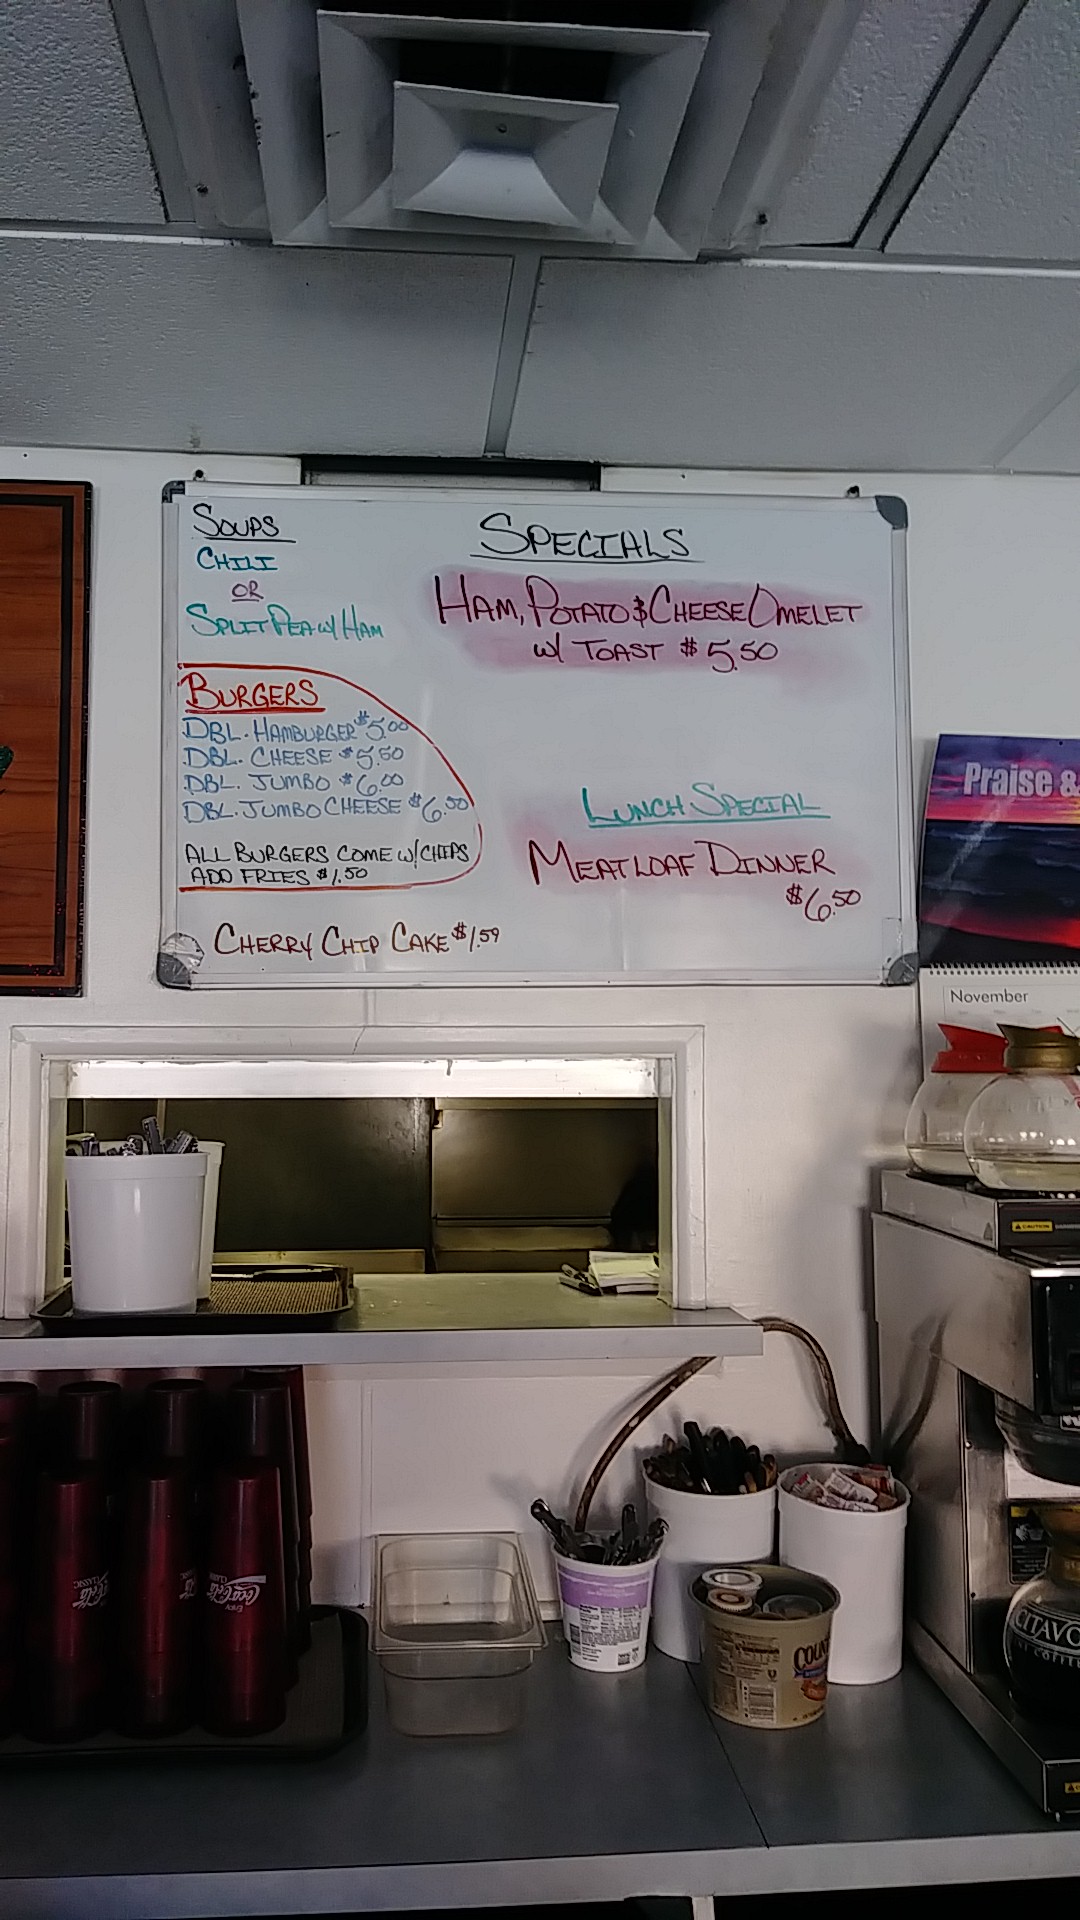 SOUPS
CHILI
OR
SPLIT PEA W/ HAM
SPECIALS
HAM, POTATO & CHEESE OMELET
W/ TOAST $5.50
BURGERS
DBL. HAMBURGER $5.00
DBL. CHEESE $5.50
DBL. JUMBO $6.00
DBL. JUMBO CHEESE $6.50
ALL BURGERS COME W/ CHIPS
ADD FRIES $1.50
CHERRY CHIP CAKE $1.59
LUNCH SPECIAL
MEATLOAF DINNER
$6.50
Praise &
November
CAUTION
Enjoy
Coca-Cola
CLASSIC
Coca-Cola
CLASSIC
COUN